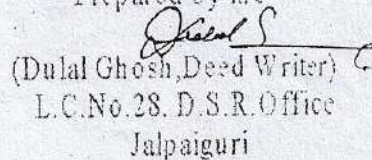 Prepared by me
(Dulal Ghosh,Deed Writer)
L.C.No.28. D.S.R.Office
Jalpaiguri